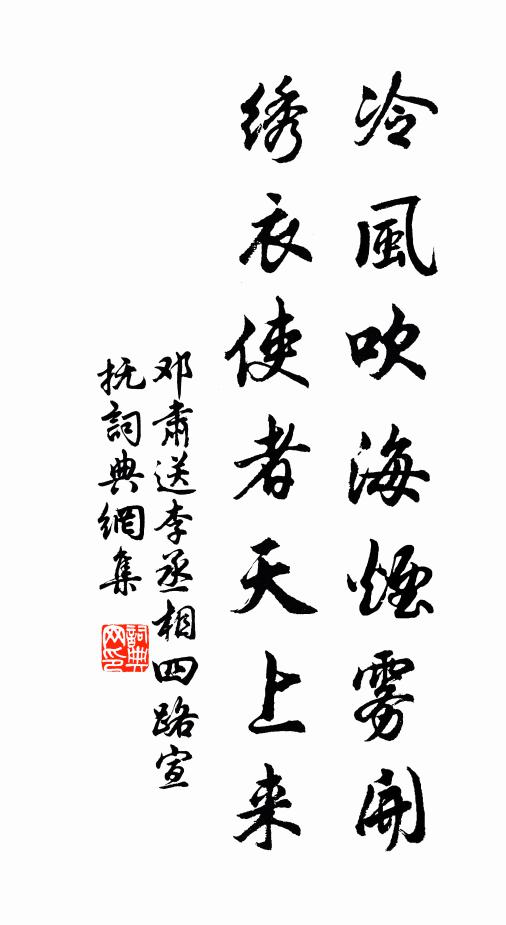 冷風吹海煙雾開
绣衣使者天上来
邓肅送李丞相四路宣
抚詞典網集
詞典
网印